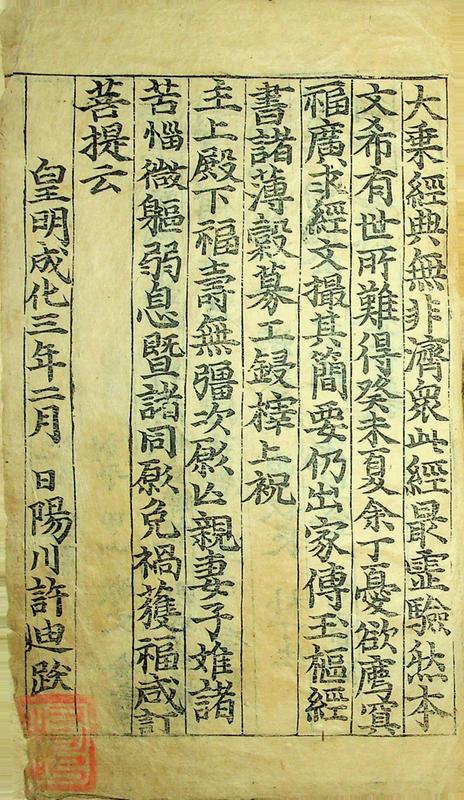 大乗經典無非濟衆此經最霊驗然本
文希有世所難得癸未夏余丁憂欲薦冥
福廣求經文撮其簡要仍出家傳玉樞經
書諸薄穀募工鋟梓上祝
主上殿下福壽無疆次願亡親妻子離諸
苦惱微軀弱息曁諸同願免禍獲福咸訂
菩提云
皇明成化三年二月 日陽川許迪跋